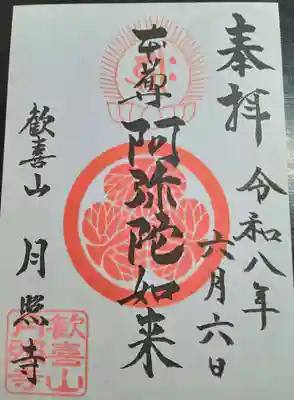 奉拝
令和八年
六月六日
本尊
阿弥陀如来
歓喜山
月照寺
歓喜山
月照寺